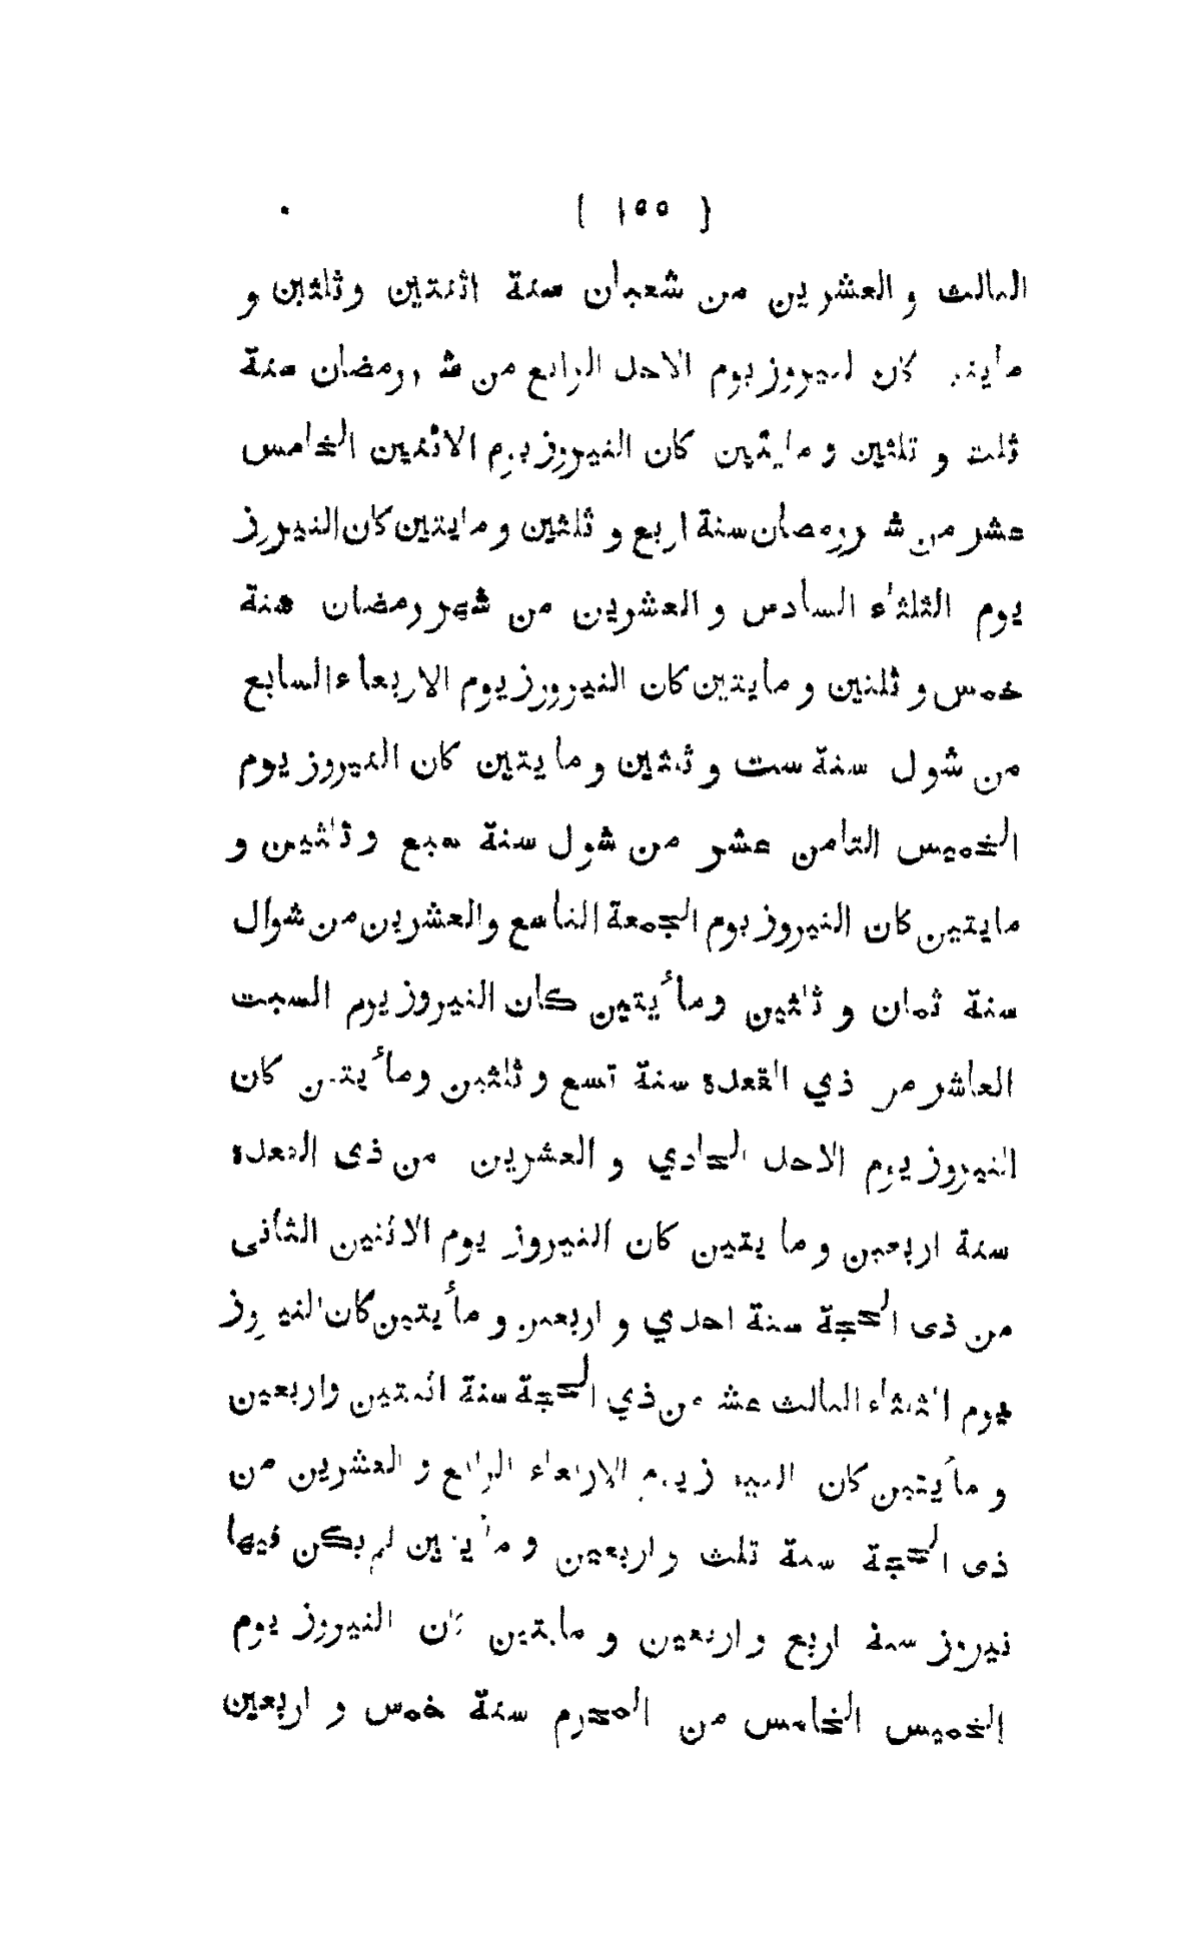 ( ١٥٥ )
الثالث والعشرين من شعبان سنة اثنتين وثلثين و
كان النيروز يوم الاحد الرابع من رمضان سنة
ثلث و ثلثين و مايتين كان النيروز يوم الاثنين الخامس
عشر من شهر رمضان سنة اربع و ثلثين و مايتين كان النيروز
يوم الثلثاء السادس و العشرين من شهر رمضان سنة
خمس و ثلثين و مايتين كان النيروز يوم الاربعاء السابع
من شول سنة ست و ثلثين و مايتين كان النيروز يوم
الخميس الثامن عشر من شول سنة سبع و ثلثين و
مايتين كان النيروز يوم الجمعة التاسع والعشرين من شوال
سنة ثمان و ثلثين ومأيتين كان النيروز يوم السبت
العاشر من ذي القعدة سنة تسع و ثلثين ومأيتين كان
النيروز يوم الاحد الحادي و العشرين من ذى القعدة
سنة اربعين و مايتين كان النيروز يوم الاثنين الثانى
من ذى الحجة سنة احدي و اربعين و مأيتين كان النيروز
يوم الثلثاء الثالث عشر من ذي الحجة سنة اثنتين واربعين
و مأيتين كان النيروز يوم الاربعاء الرابع و العشرين من
ذى الحجة سنة ثلث و اربعين و مأيتين لم يكن فيها
نيروز سنة اربع و اربعين و مايتين كان النيروز يوم
الخميس الخامس من المحرم سنة خمس و اربعين